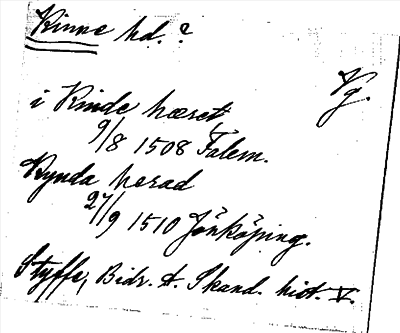 Kinne hd.?
Vg.
i Kinde hæret
9/8 1508 Falem.
Kynda herad
27/9 1510 Jönköping.
Styffe, Bidr. t. Skand. hist. V.